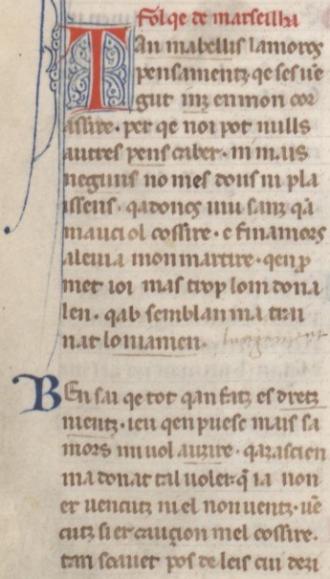 Folqe de marseilha
TAn mabellis lamoros
pensamentz qe ses ue
gut inz en mon cor
assire · per qe noi pot nulls
autres pens caber · ni maıs
neguns no mes dous ni pla
issens · qadoncs uiu sanz qā
mauciol cossire · e finamors
aleuia mon martire · qen ꝑ
met ioi mas trop lom dona
len · qab semblan ma trai
nat loniamen ·
BEn sai qe tot qan fatz es dretz
nientz · ieu qen puesc mais sa
mors mi uol aucire · qa escien
ma donat tal uoler · q̄ ia non
er uencutz ni el non uentz · uē
cutz si er caucion mel cossire ·
tan soauet pos de leis cui dezi